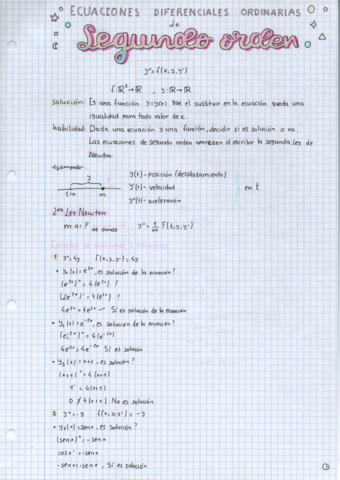 ECUACIONES DIFERENCIALES ORDINARIAS
de
Segundo orden
y''=f(x,y,y')
f: R³→R , y: R→R
solución: Es una función y=y(x) que al sustituir en la ecuación queda una
igualdad para todo valor de x.
habilidad: Dada una ecuación y una función, decidir si es solución o no.
Las ecuaciones de segundo orden aparecen al escribir la segunda ley de
Newton.
ejemplo:
y
m
y(t) - posición (desplazamiento)
y'(t) - velocidad
y''(t) - aceleración
en t
2da Ley Newton
m·a = F de donde y'' = 1/m F(t,y,y')
Ejemplos de ecuaciones y soluciones
1. y''=4y f(x,y,y')=4y
• y₁(x)=e²ˣ, es solución de la ecuación?
(e²ˣ)''=4(e²ˣ) ?
(2e²ˣ)'=4(e²ˣ) ?
4e²ˣ=4e²ˣ — Sí es solución de la ecuación
• y₂(x)=e⁻²ˣ, es solución de la ecuación?
(e⁻²ˣ)''=4(e⁻²ˣ)
4e⁻²ˣ=4e⁻²ˣ Sí es solución
• y₃(x)=x+1, es solución?
(x+1)''=4(x+1)
1'=4(x+1)
0≠4(x+1) No es solución
2. y''=-y f(x,y,y')=-y
• y₁(x)=sen x, es solución?
(sen x)''=-sen x
cos x'=-sen x
-sen x=-sen x, Sí es solución
1